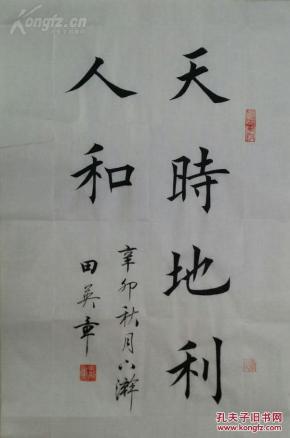 天時地利
人和
辛卯秋月
田英章
Kongfz.cn
孔夫子旧书网
KONGFZ.COM